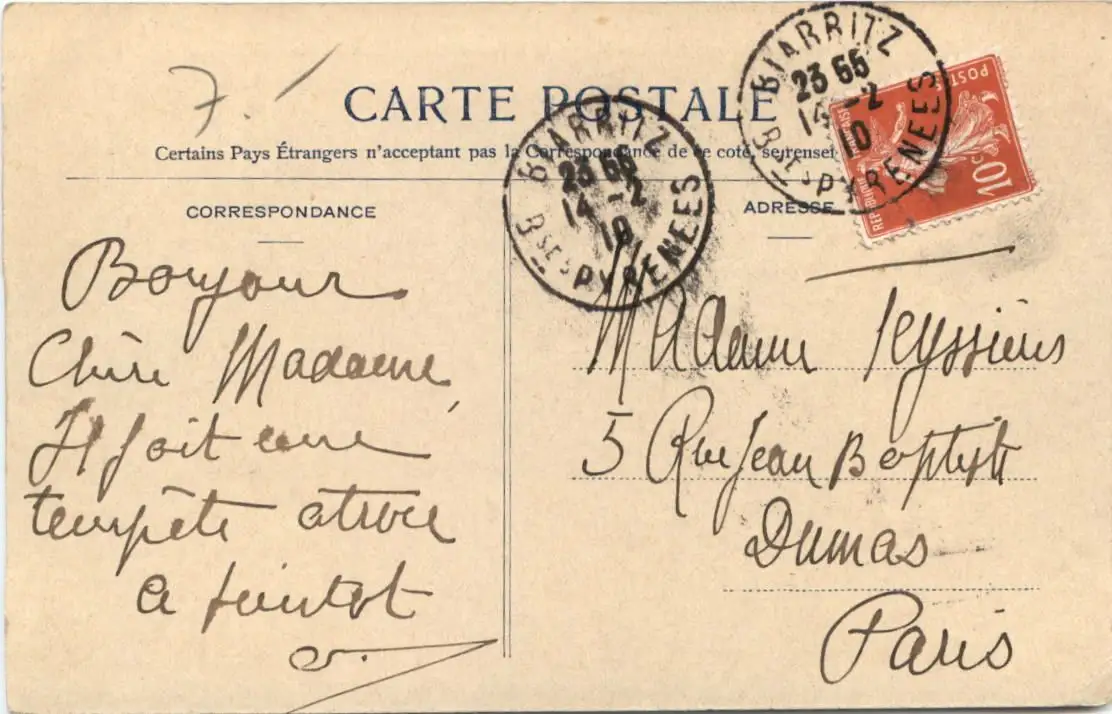 7
CARTE POSTALE
Certains Pays Étrangers n'acceptant pas la Correspondance de ce coté, se rensei
CORRESPONDANCE
ADRESSE
BIARRITZ
23 55
14 -2
10
BSES PYRENEES
BIARRITZ
23 55
14 -2
10
BSES PYRENEES
POSTES
10c
Bonjour
Chère Madame,
Il fait une
tempête atroce
a bientot
Madame
5 Rue Jean Baptiste
Dumas
Paris